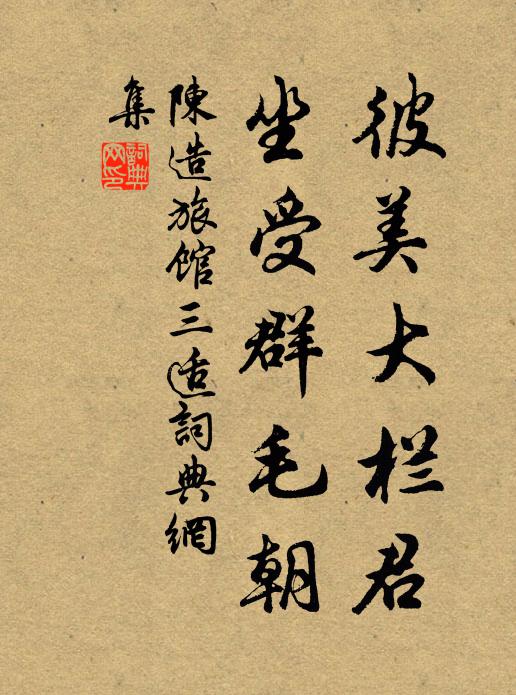 彼美大栏君
坐受群毛朝
陳造旅館三适詞典網
集
詞典网印